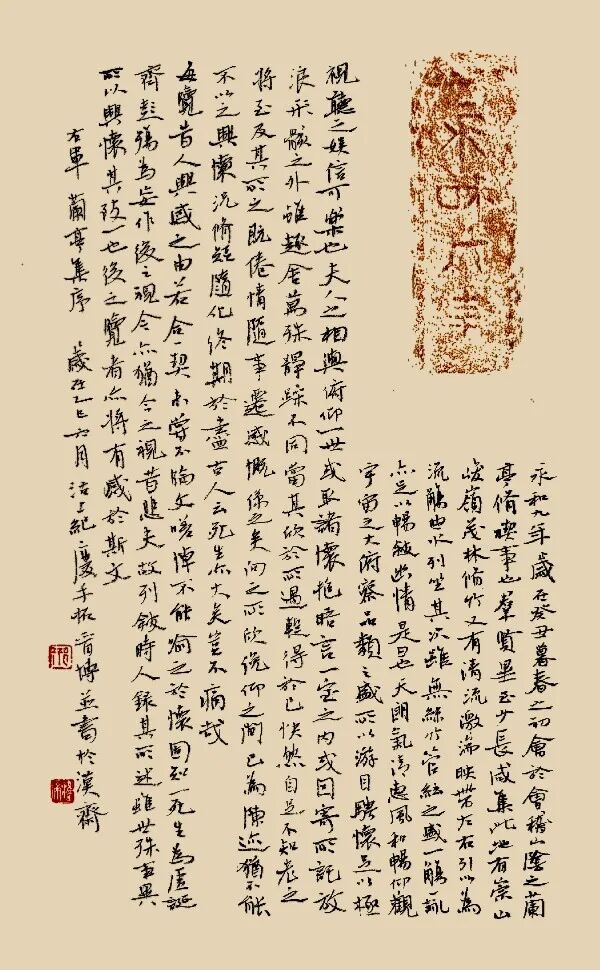 永和九年歲在癸丑暮春之初會於會稽山陰之蘭
亭脩稧事也羣賢畢至少長咸集此地有崇山
峻嶺茂林脩竹又有清流激湍映帶左右引以為
流觴曲水列坐其次雖無絲竹管絃之盛一觴一詠
亦足以暢敘幽情是日也天朗氣清惠風和暢仰觀
宇宙之大俯察品類之盛所以游目騁懷足以極
視聽之娛信可樂也夫人之相與俯仰一世或取諸懷抱晤言一室之內或因寄所託放
浪形骸之外雖趣舍萬殊靜躁不同當其欣於所遇輕得於己快然自足不知老之
將至及其所之既倦情隨事遷感慨係之矣向之所欣俛仰之間已為陳迹猶不能
不以之興懷況脩短隨化終期於盡古人云死生亦大矣豈不痛哉
每覽昔人興感之由若合一契未嘗不臨文嗟悼不能喻之於懷固知一死生為虛誕
齊彭殤為妄作後之視今亦猶今之視昔悲夫故列敘時人錄其所述雖世殊事異
所以興懷其致一也後之覽者亦將有感於斯文
右軍蘭亭集序 歲在乙巳六月沽上紀慶手拓晉磚並書於漢齋